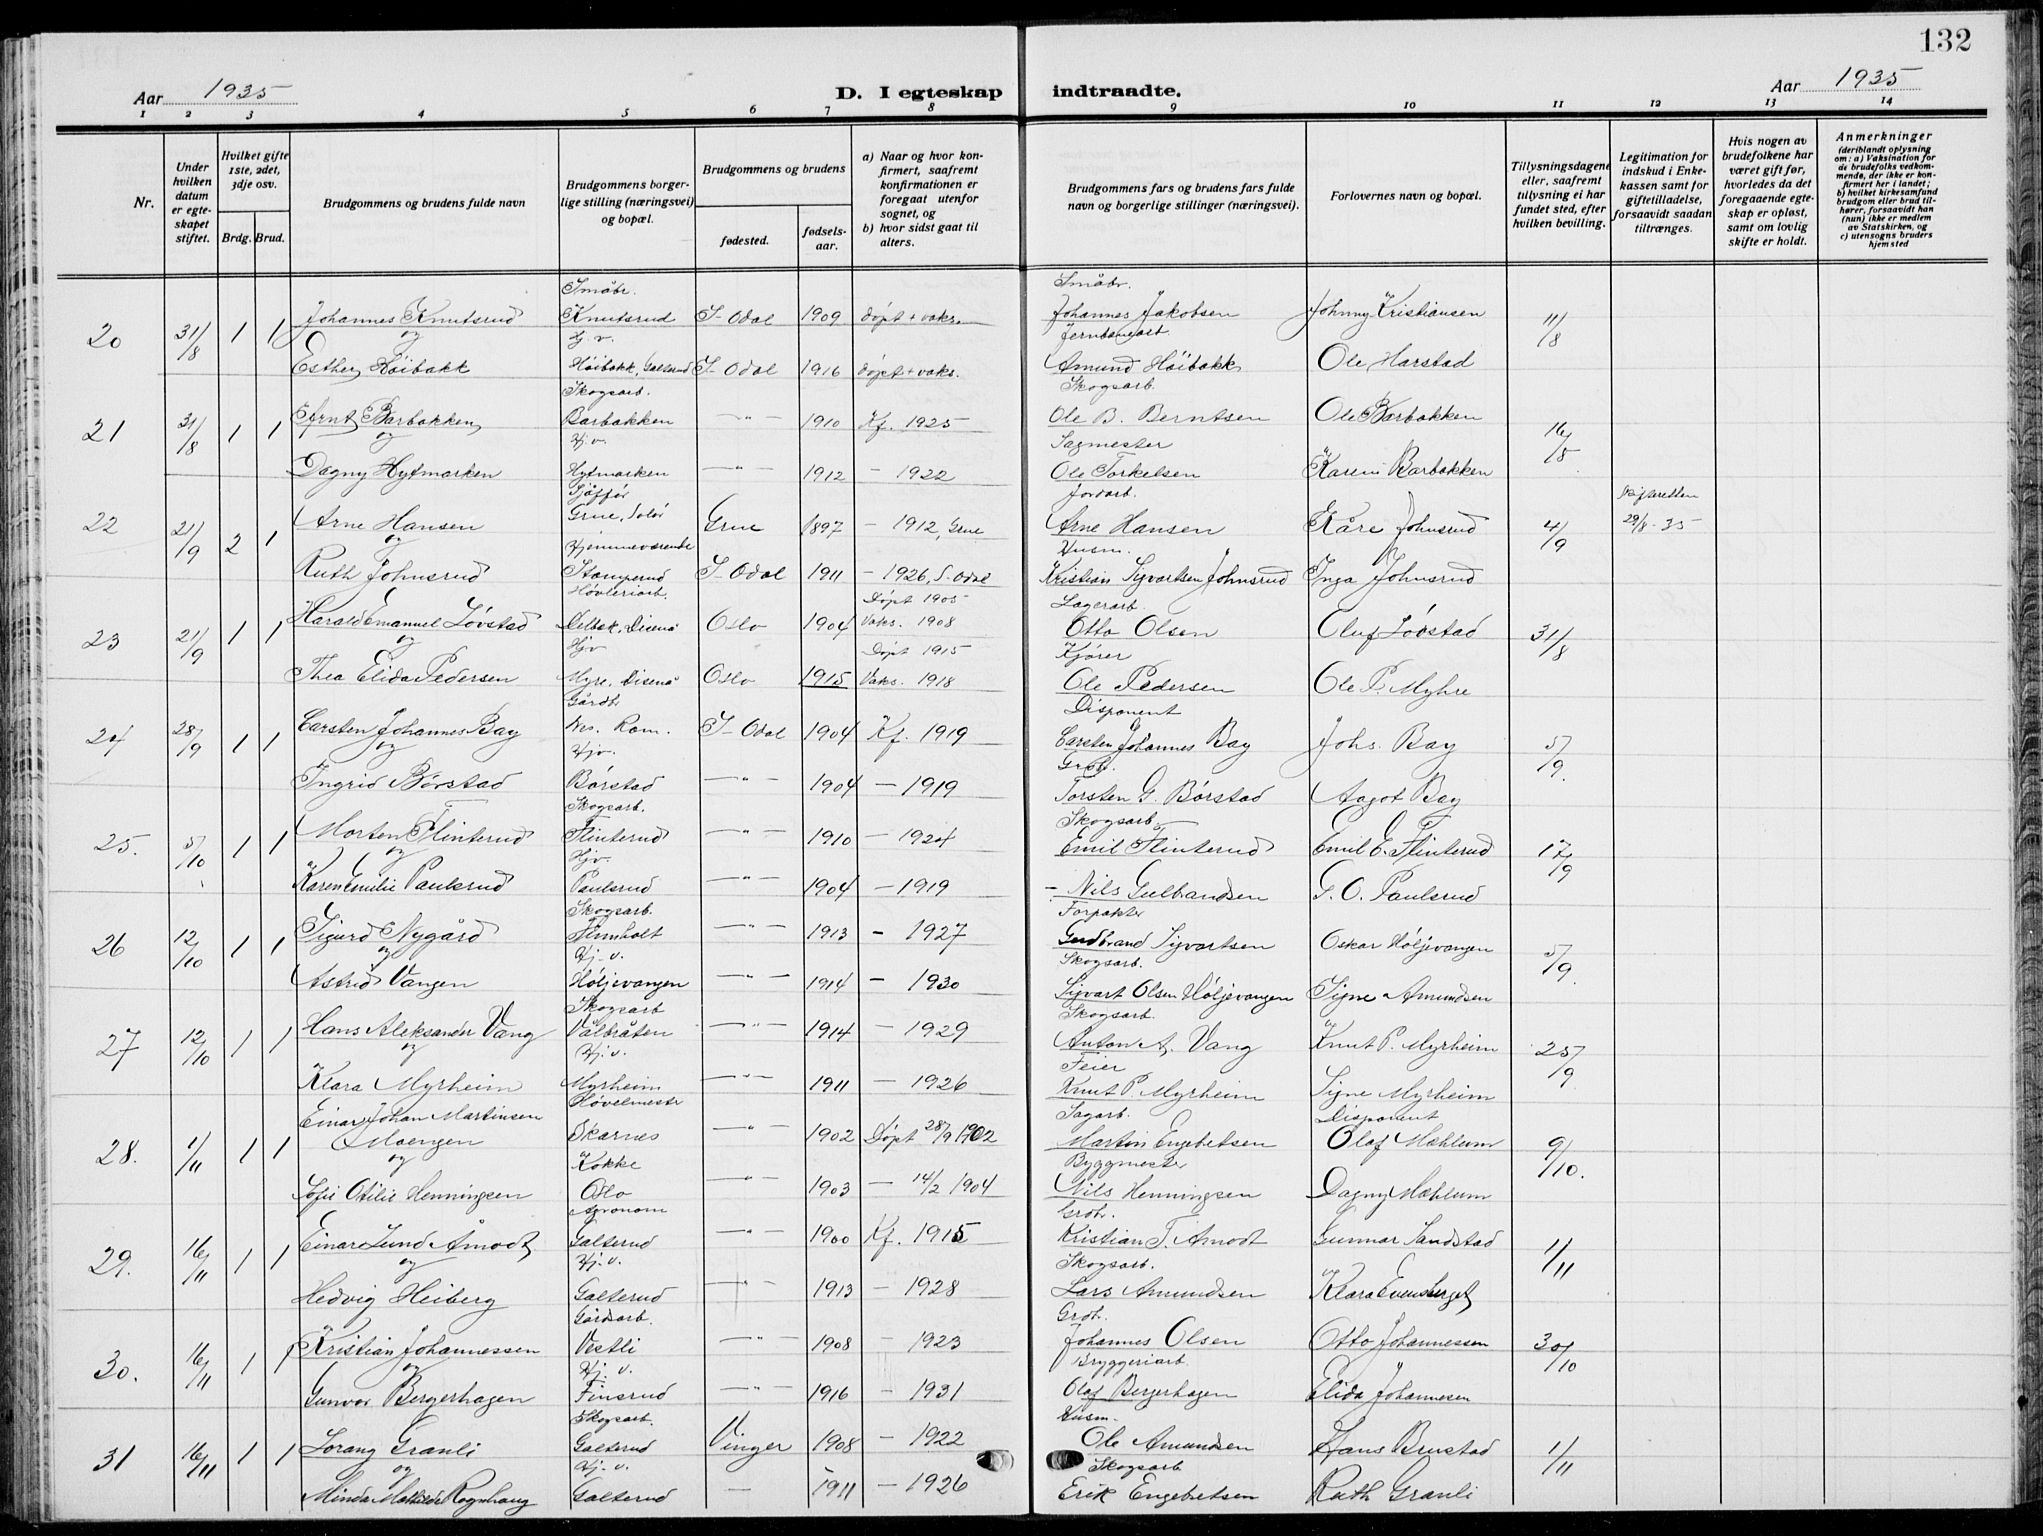 132
Aar 1935 D. I egteskap indtraadte. Aar 1935
1 2 3 4 5 6 7 8 9 10 11 12 13 14
Nr.
Under hvilken datum er egteskapet stiftet.
Hvilket gifte 1ste, 2det, 3dje osv.
Brdg. Brud.
Brudgommens og brudens fulde navn
Brudgommens borgerlige stilling (næringsvei) og bopæl.
Brudgommens og brudens
fødested. fødselsaar.
a) Naar og hvor konfirmert, saafremt konfirmationen er foregaat utenfor sognet, og
b) hvor sidst gaat til alters.
Brudgommens fars og brudens fars fulde navn og borgerlige stillinger (næringsvei).
Forlovernes navn og bopæl.
Tillysningsdagene eller, saafremt tillysning ei har fundet sted, efter hvilken bevilling.
Legitimation for indskud i Enkekassen samt for giftetilladelse, forsaavidt saadan tiltrænges.
Hvis nogen av brudefolkene har været gift før, hvorledes da det foregaaende egteskap er opløst, samt om lovlig skifte er holdt.
Anmerkninger (deriblandt oplysning om: a) Vaksination for de brudefolks vedkommende, der ikke er konfirmert her i landet; b) hvilket kirkesamfund brudgom eller brud tilhører, forsaavidt han (hun) ikke er medlem av Statskirken, og c) utensogns bruders hjemsted
Småbr. Småbr.
20 31/8 1 1 Johannes Knutsrud Knutsrud S-Odal 1909 døpt + vaks. Johannes Jakobsen Johnny Kristiansen 11/8
og H. v. Jernbanearb.
Esther Høibakk Høibakk, Galterud S-Odal 1916 døpt + vaks. Amund Høibakk Ole Harstad
Skogsarb. Skogsarb.
21 31/8 1 1 Arnt Barbakken Barbakken —"— 1910 Kf. 1925 Ole B. Berntsen Ole Barbakken 16/8
og Hj. v. Sagmester
Dagny Hytmarken Hytmarken —"— 1912 — 1922 Ole Torkelsen Karen Barbakken
Sjåffør Jordarb. Skifteretten
22 21/9 2 1 Arne Hansen Grue, Solør Grue 1897 — 1912, Grue Arne Hansen Kåre Johnsrud 4/9 29/8-35
og Hjemmeværende Husm.
Ruth Johnsrud Stomperud S-Odal 1911 — 1926, S-Odal Kristian Sigvartsen Johnsrud Inga Johnsrud
Høvleriarb. Døpt 1905 Lagerarb.
23 21/9 1 1 Harald Emanuel Løvstad Disenå Oslo 1904 Vaks. 1908 Otto Olsen Oluf Løvstad 31/8
og Hjv Døpt 1915 Kjører
Thea Elida Pedersen Myre, Disenå Oslo 1915 Vaks. 1918 Ole Pedersen Ole P. Myhre
Gårdbr Disponent
24 28/9 1 1 Carsten Johannes Bay Nes. Rom. S-Odal 1904 Kf. 1919 Carsten Johannes Bay Johs. Bay 5/9.
og Hjv. Grdbr.
Ingrid Børstad Børstad —"— 1904 — 1919 Torsten G. Børstad Aagot Bay
Skogsarb. Skogsarb.
25. 5/10 1 1 Morten Flinterud Flinterud —"— 1910 — 1924 Emil Flinterud Emil E. Flinterud 17/9
og Hjv.
Karen Emilie Paulsrud Paulsrud —"— 1904 — 1919 — Nils Gulbandsen G. O. Paulsrud
Skogsarb. Forpakter
26 12/10 1 1 Sigurd Nygård Finnholt —"— 1913 - 1927 Gudbrand Sigvartsen Oskar Høljevangen 5/9.
og Hj. v. Skogsarb.
Astrid Vangen Høljevangen —"— 1914 - 1930 Sigvart Olsen Høljevangen Signe Amundsen
Skogsarb Skogsarb.
27 12/10 1 1 Hans Aleksander Vang Vålbråten —"— 1914 — 1929 Anton A. Vang Knut P. Myrheim 25/9.
og Hj. v. Feier
Klara Myrheim Myrheim —"— 1911 — 1926 Knut P. Myrheim Signe Myrheim
Einar Johan Martinsen Høvelmestr Sagarb. Disponent
28. 1/11 1 1 Moengen Skarnes —"— 1902 Døpt 28/9 1902 Martin Engebretsen Olaf Mæhlum 9/10.
og Kokke Byggmester
Sofie Otilie Henningsen Oslo —"— 1903 — 14/2 1904 Nils Henningsen Dagny Mæhlum
Agronom Grdbr.
29. 16/11 1 1 Einar Lund Åmodt Galterud —"— 1900 Kf. 1915 Kristian T. Amodt Gunnar Sandstad 1/11
og Hj. v. Skogsarb.
Hedvig Heiberg Galterud —"— 1913 — 1928 Lars Amundsen Klara Evensberget
Gårdsarb. Grdbr.
30. 16/11 1 1 Kristian Johannessen Vestli —"— 1908 — 1923 Johannes Olsen Otto Johannessen 30/10
og Hj. v. Bryggeriarb.
Gunvor Bergerhagen Finsrud —"— 1916 — 1931 Olaf Bergerhagen Elida Johannesen
Skogsarb. Husm.
31 16/11 1 1 Lorang Granli Galterud Vinger 1908 — 1922 Ole Amundsen Hans Brustad 1/11
og Hj. v. Skogsarb
Minda Mathilde Rognhaug Galterud — 1911 — 1926 Erik Engebretsen Ruth Granli